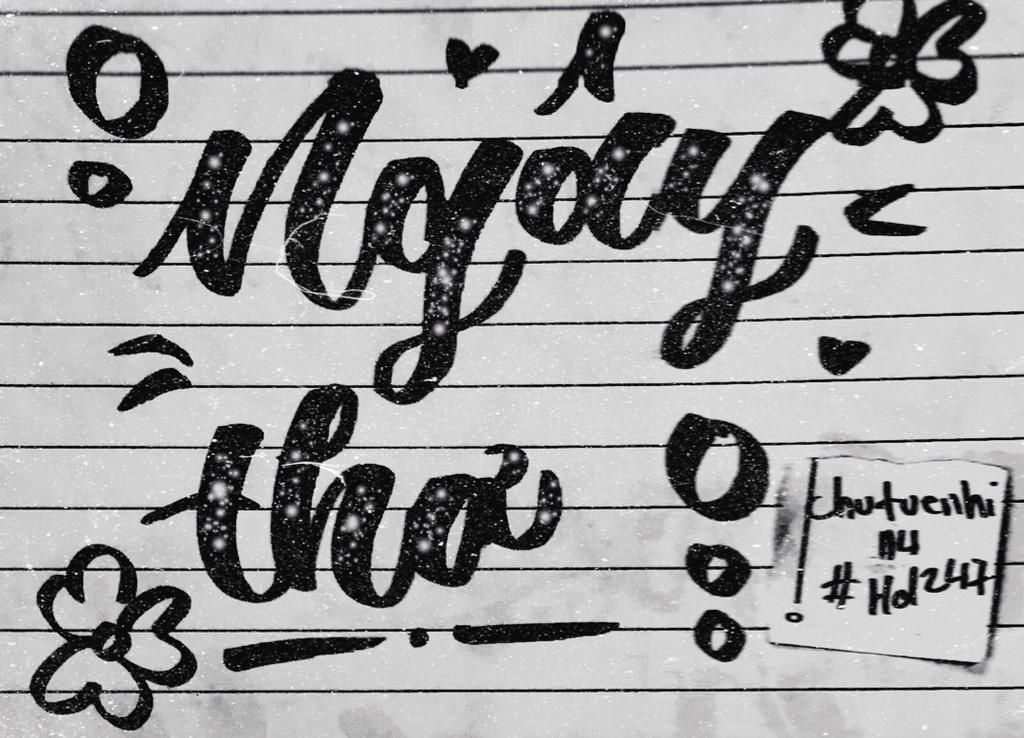 Ngây
thơ
chutuenhi
A4
#Hd247